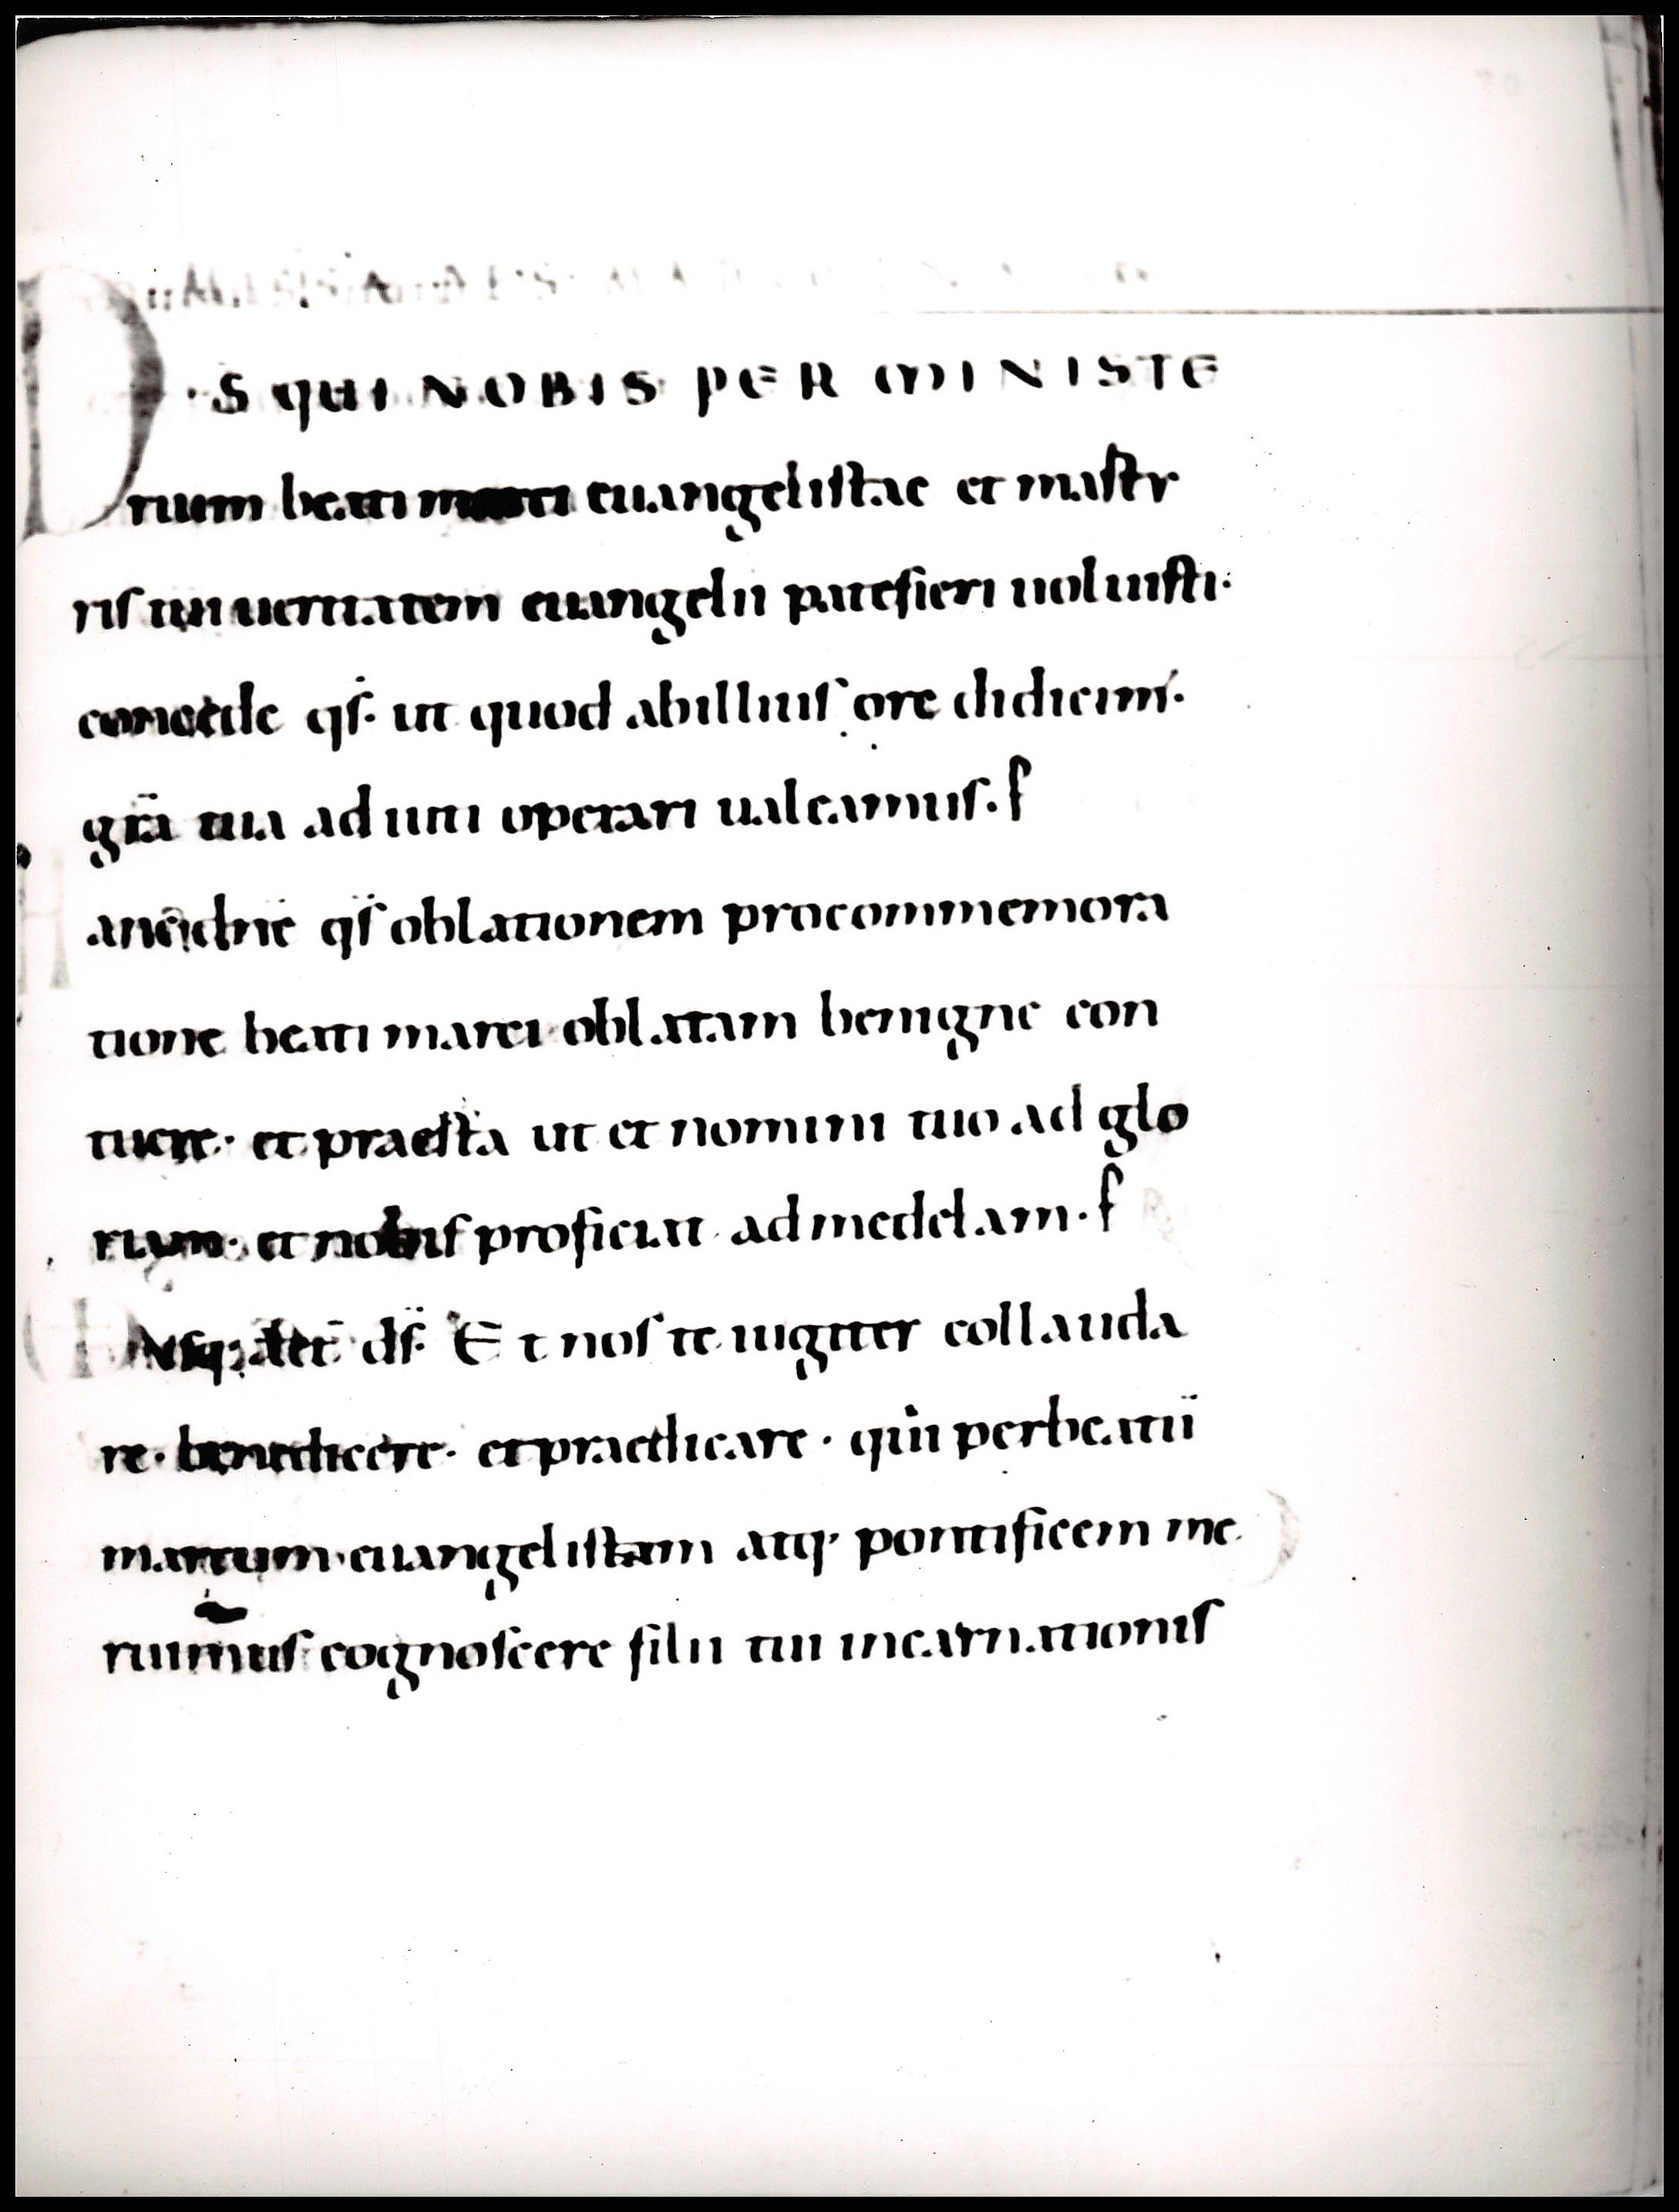 DS QUI NOBIS PER MINISTE
rium beati marci euangelistae et mar̅tr
ris tui ueritatem euangelii patefieri uoluisti·
concede q̅s· ut quod ab illius ore didicim̅·
gr̅a tua adiuti operari ualeamus· ꝑ
Hanc dn̅e q̅s oblationem pro commemora
tione beati marci oblatam benigne con
tuere· et praesta ut et nomini tuo ad glo
riam· et nobis proficiat ad medelam· ꝑ
ds· Et nos te iugiter collauda
re· benedicere· et praedicare· qui per beatū
marcum euangelistam atq· pontificem me
ruimus cognoscere filii tui incarnationis